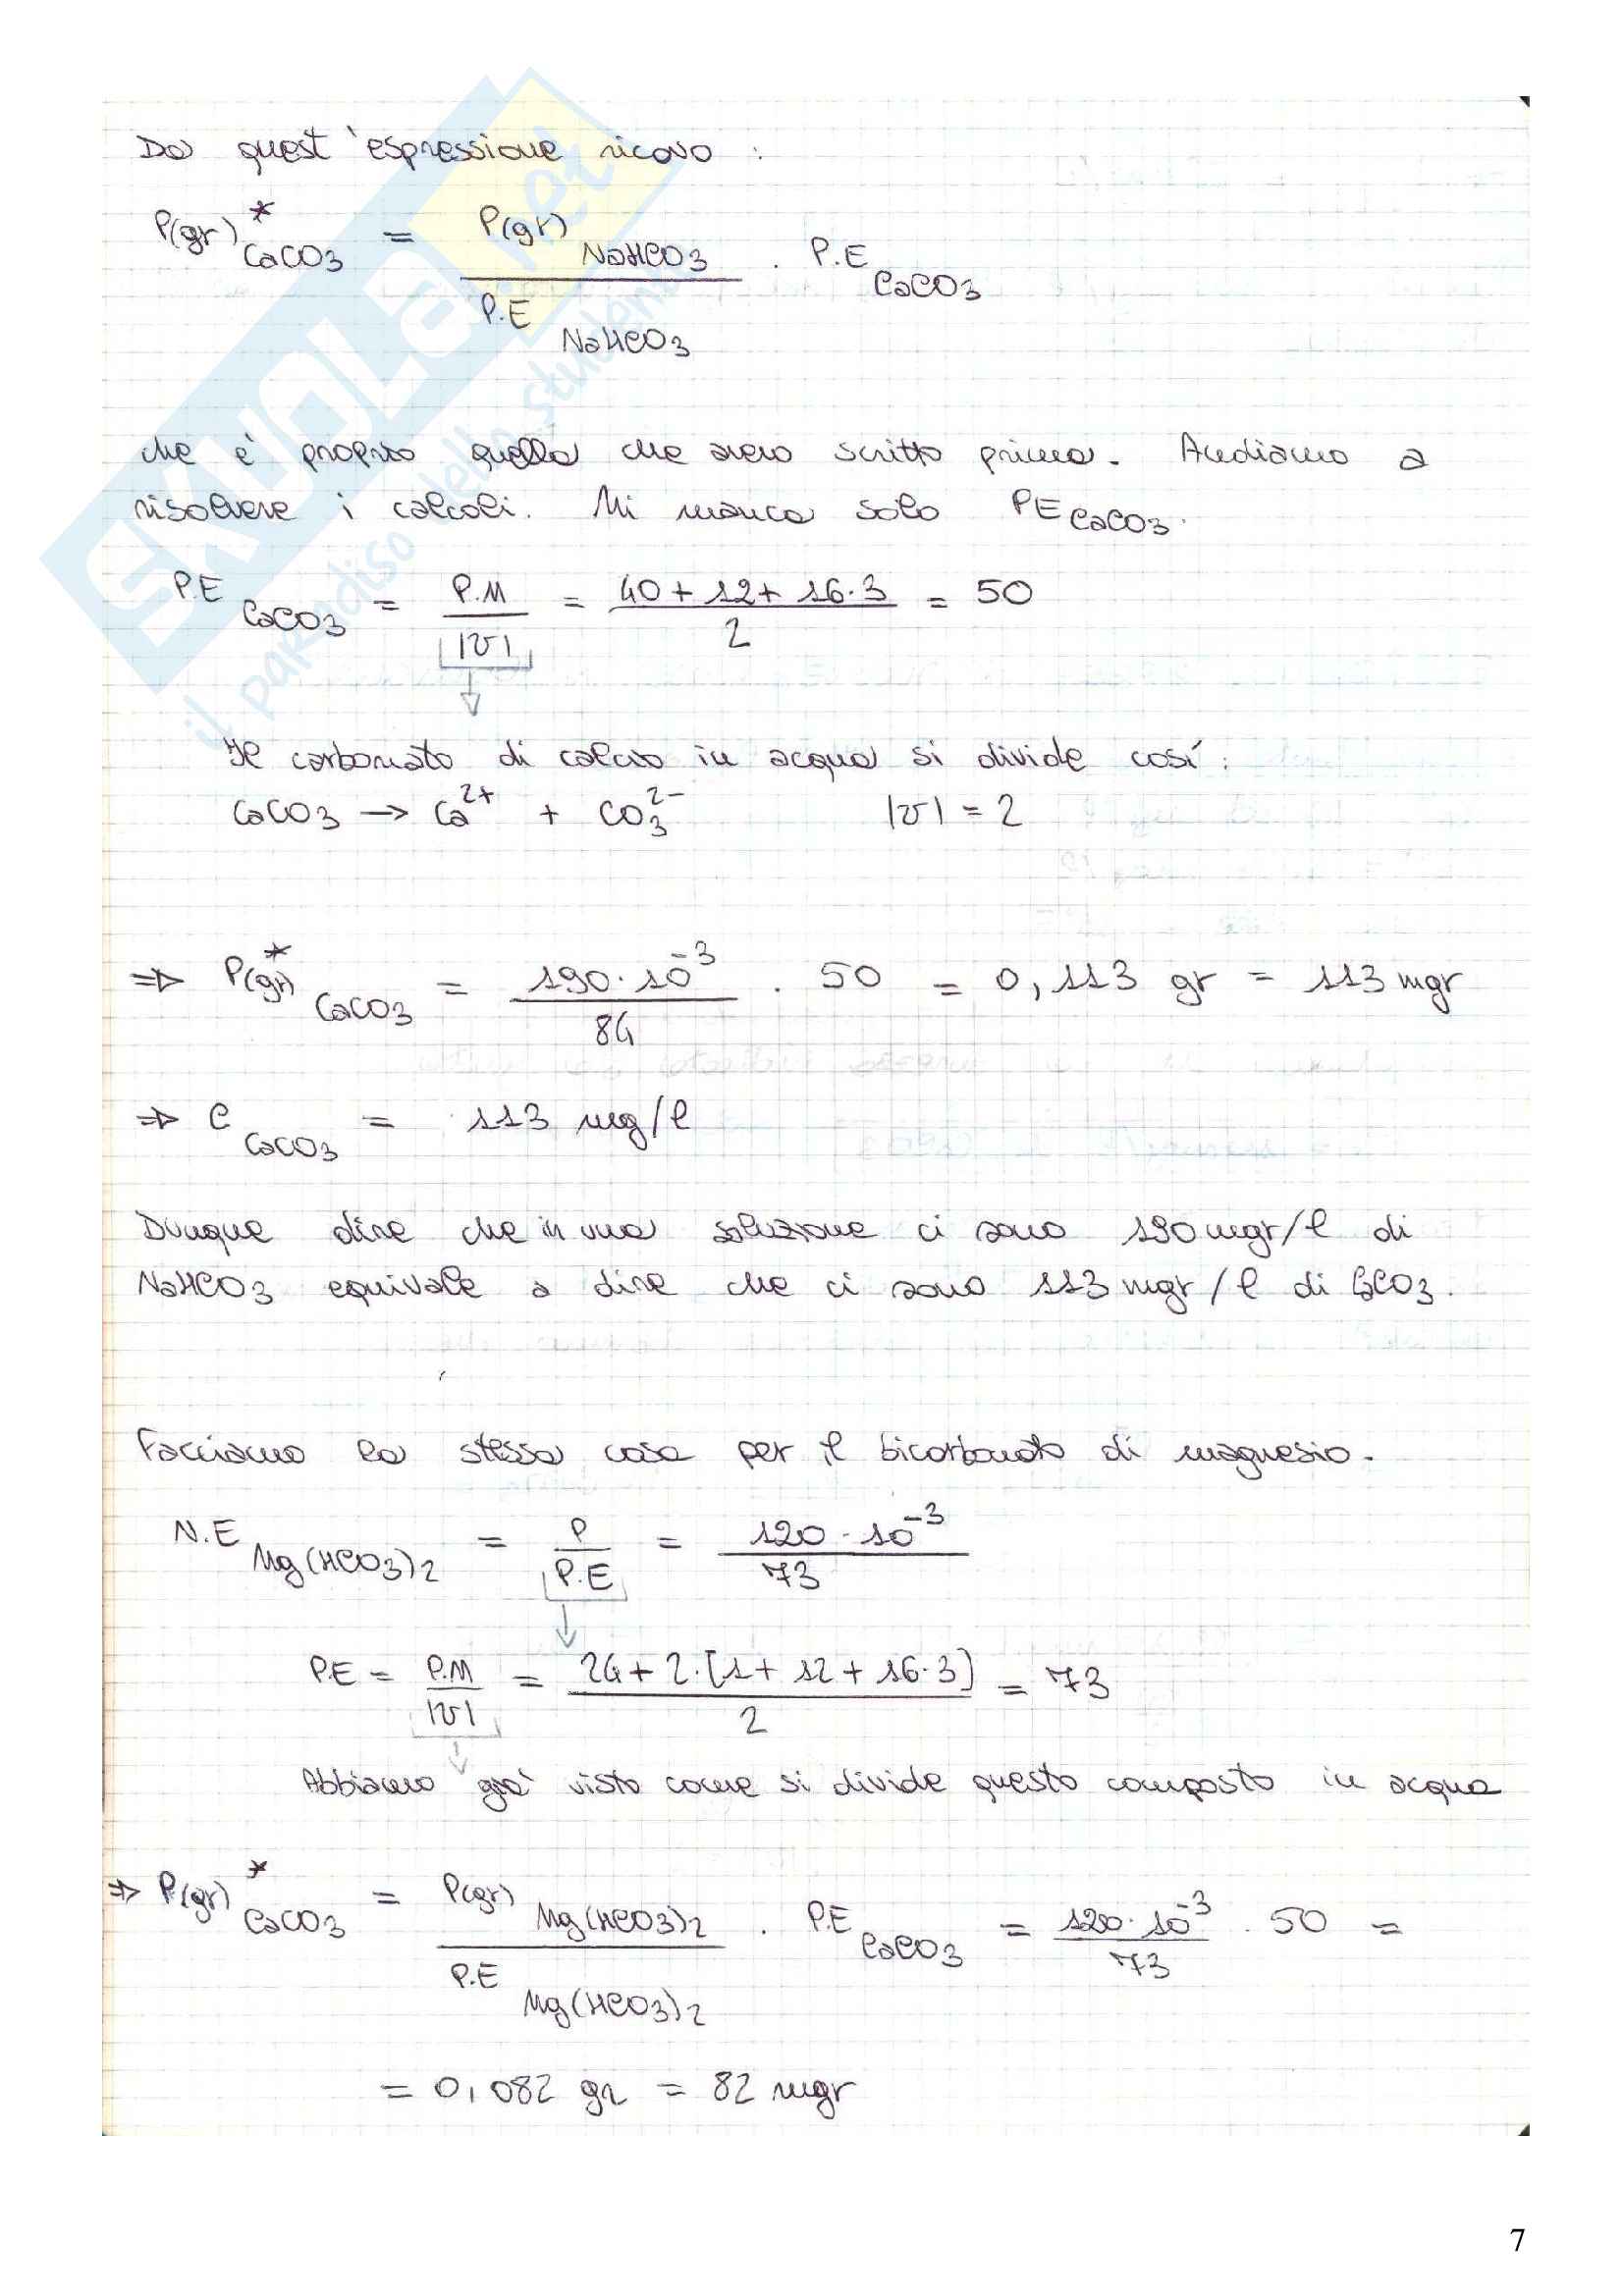 Da quest'espressione ricavo :
P(gr)*CaCO3 = P(gr)NaHCO3 / P.E NaHCO3 · P.E CaCO3
che è proprio quella che avevo scritto prima. Andiamo a
risolvere i calcoli. Mi manca solo PE CaCO3.
P.E CaCO3 = P.M / |v| = 40 + 12 + 16·3 / 2 = 50
Il carbonato di calcio in acqua si divide così :
CaCO3 → Ca²⁺ + CO3²⁻ |v| = 2
⇒ P(gr)*CaCO3 = 190·10⁻³ / 84 · 50 = 0,113 gr = 113 mgr
⇒ C CaCO3 = 113 mg/l
Dunque dire che in una soluzione ci sono 190 mgr/l di
NaHCO3 equivale a dire che ci sono 113 mgr/l di CaCO3.
Facciamo la stessa cosa per il bicarbonato di magnesio.
N.E Mg(HCO3)2 = P / P.E = 120·10⁻³ / 73
P.E = P.M / |v| = 24 + 2·[1 + 12 + 16·3] / 2 = 73
Abbiamo già visto come si divide questo composto in acqua
⇒ P(gr)*CaCO3 = P(gr)Mg(HCO3)2 / P.E Mg(HCO3)2 · P.E CaCO3 = 120·10⁻³ / 73 · 50 =
= 0,082 gr = 82 mgr
7
SKUOLA.net
il paradiso dello studente